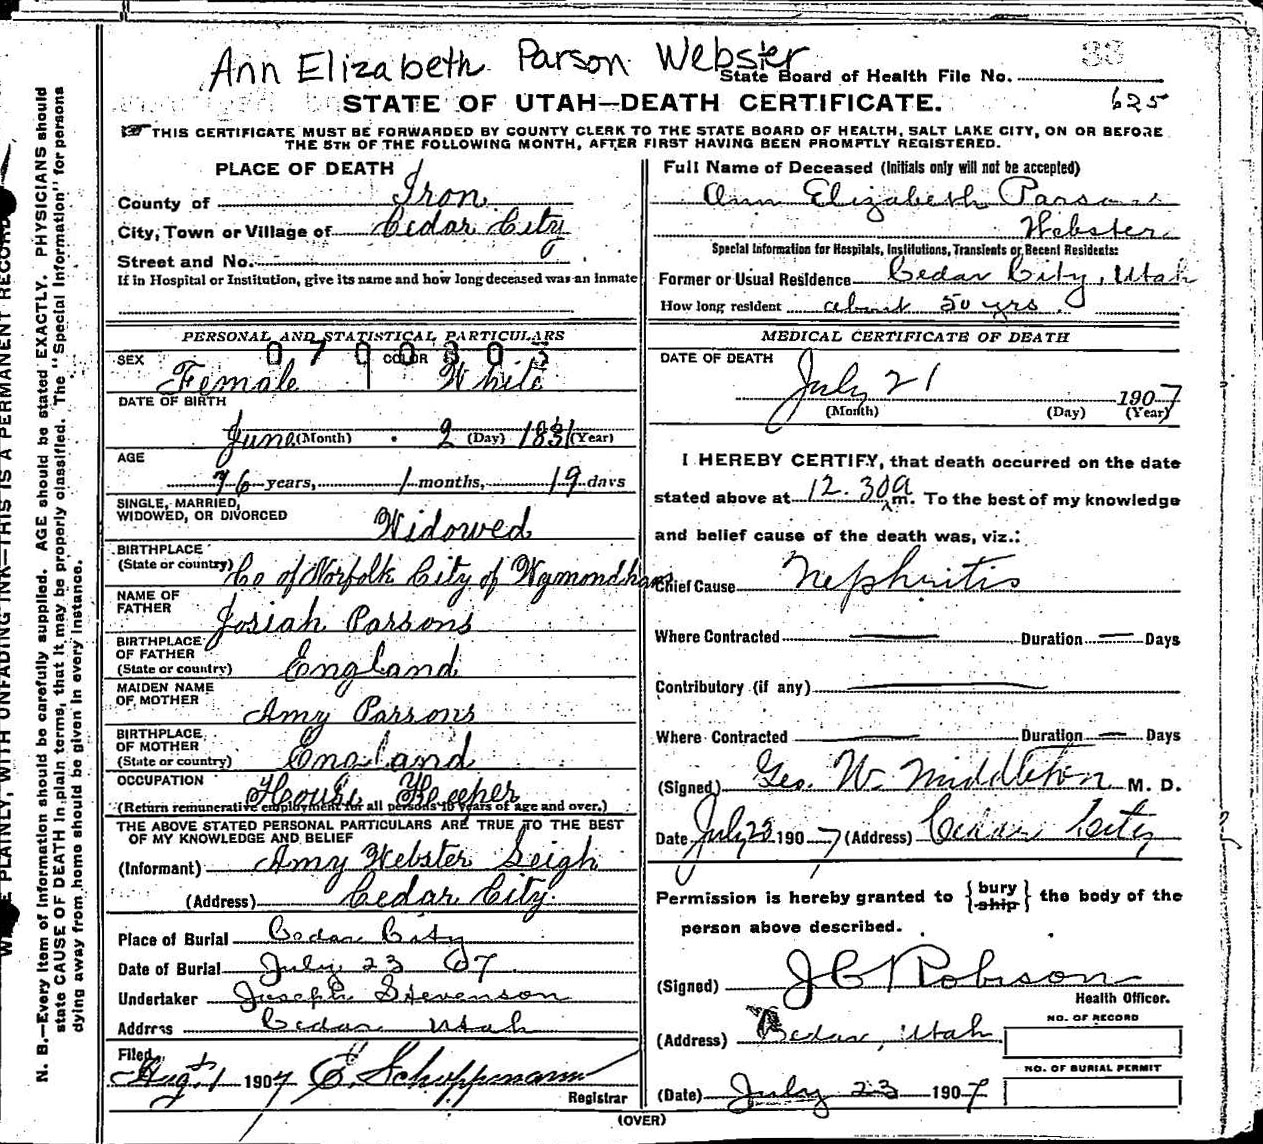 Ann Elizabeth Parson Webster
33
State Board of Health File No.
625
STATE OF UTAH—DEATH CERTIFICATE.
THIS CERTIFICATE MUST BE FORWARDED BY COUNTY CLERK TO THE STATE BOARD OF HEALTH, SALT LAKE CITY, ON OR BEFORE
THE 5TH OF THE FOLLOWING MONTH, AFTER FIRST HAVING BEEN PROMPTLY REGISTERED.
PLACE OF DEATH
County of Iron
City, Town or Village of Cedar City
Street and No.
If in Hospital or Institution, give its name and how long deceased was an inmate
PERSONAL AND STATISTICAL PARTICULARS
0 7 0 0 3 0 3
SEX Female
COLOR White
DATE OF BIRTH
June (Month) 2 (Day) 1831 (Year)
AGE
76 years, 1 months, 19 days
SINGLE, MARRIED,
WIDOWED, OR DIVORCED Widowed
BIRTHPLACE
(State or country) Co of Norfolk City of Wymondham
NAME OF
FATHER Josiah Parsons
BIRTHPLACE
OF FATHER
(State or country) England
MAIDEN NAME
OF MOTHER Amy Parsons
BIRTHPLACE
OF MOTHER
(State or country) England
OCCUPATION House Keeper
(Return remunerative employment for all persons 10 years of age and over.)
THE ABOVE STATED PERSONAL PARTICULARS ARE TRUE TO THE BEST
OF MY KNOWLEDGE AND BELIEF
(Informant) Amy Webster Leigh
(Address) Cedar City.
Place of Burial Cedar City
Date of Burial July 23 07
Undertaker Joseph Stevenson
Address Cedar Utah
Filed
Augst 1 1907 E Schoppmann
Registrar
Full Name of Deceased (Initials only will not be accepted)
Ann Elizabeth Parsons
Webster
Special Information for Hospitals, Institutions, Transients or Recent Residents:
Former or Usual Residence Cedar City, Utah
How long resident about 50 yrs
MEDICAL CERTIFICATE OF DEATH
DATE OF DEATH
July 21 1907
(Month) (Day) (Year)
I HEREBY CERTIFY, that death occurred on the date
stated above at 12.30 a m. To the best of my knowledge
and belief cause of the death was, viz.:
Chief Cause Nephritis
Where Contracted Duration Days
Contributory (if any)
Where Contracted Duration Days
(Signed) Geo. W. Middleton M. D.
Date July 23 1907 (Address) Cedar City
Permission is hereby granted to {bury ship} the body of the
person above described.
(Signed) J C Robison
Health Officer.
(Address) Cedar, Utah
NO. OF RECORD
NO. OF BURIAL PERMIT
(Date) July 23 1907
(OVER)
PLAINLY, WITH UNFADING INK—THIS IS A PERMANENT RECORD
N. B.—Every item of information should be carefully supplied. AGE should be stated EXACTLY. PHYSICIANS should
state CAUSE OF DEATH in plain terms, that it may be properly classified. The "Special Information" for persons
dying away from home should be given in every instance.